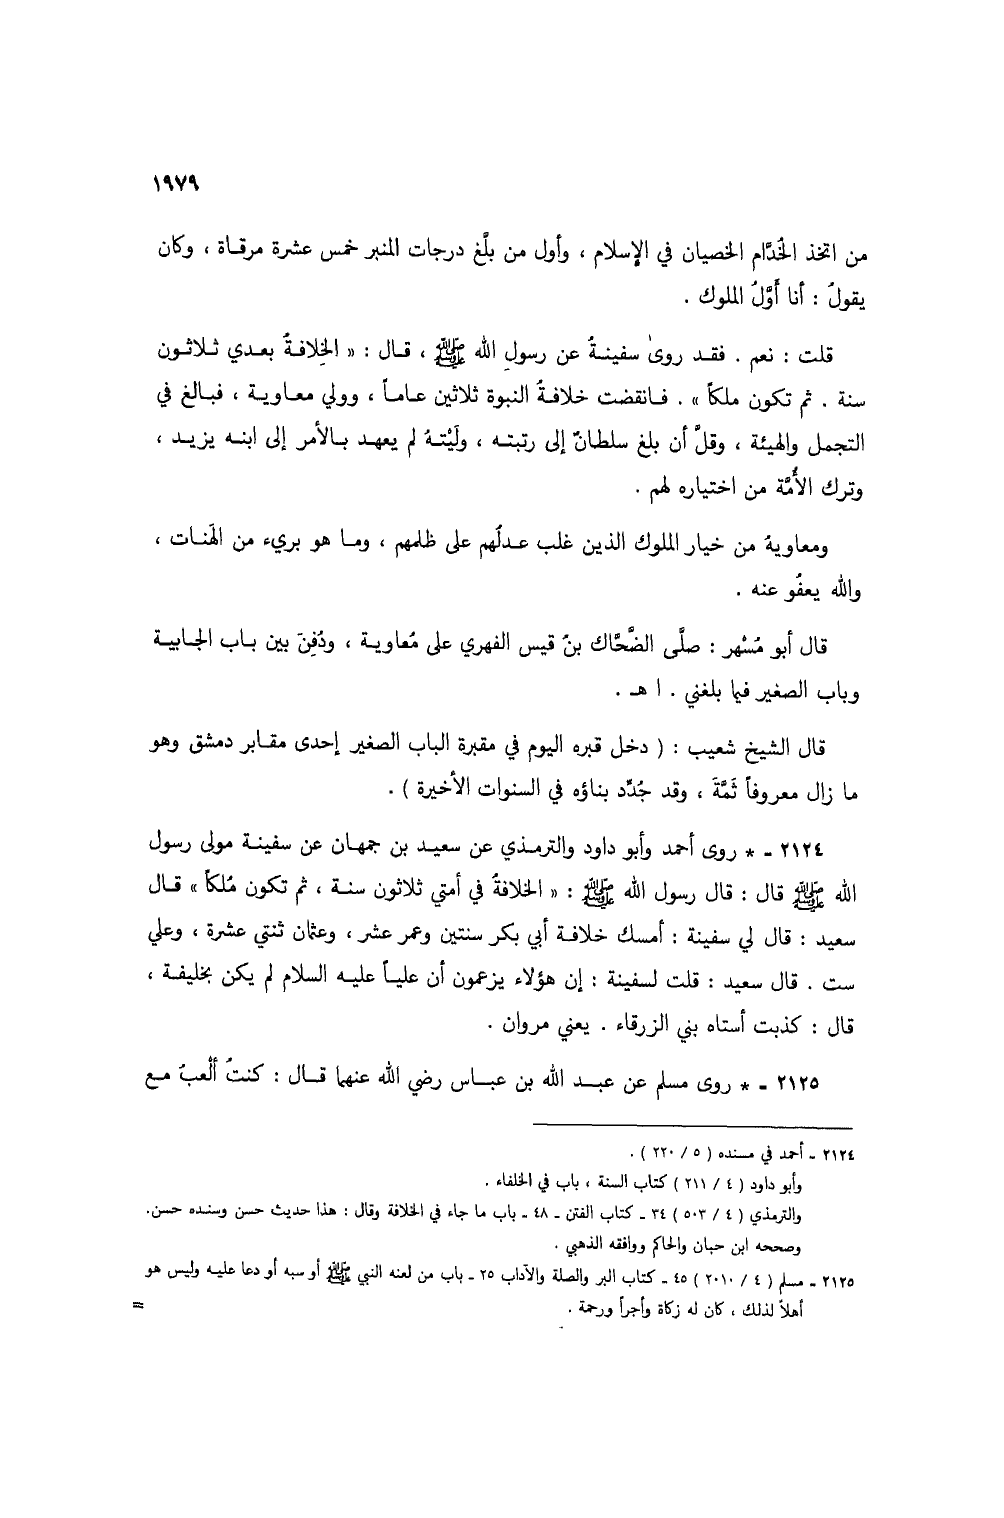 ١٩٧٩
من اتخذ الخُدَّام الخصيان في الإسلام ، وأول من بلَّغ درجات المنبر خمس عشرة مرقاة ، وكان
يقولُ : أنا أَوَّلُ الملوك .
قلت : نعم . فقد روىٰ سفينةُ عن رسولِ الله ﷺ ، قال : « الخِلافةُ بعدي ثلاثون
سنة . ثم تكون ملكاً » . فانقضت خلافةُ النبوة ثلاثين عاماً ، وولي معاوية ، فبالغ في
التجمل والهيئة ، وقلَّ أن بلغ سلطانٌ إلى رتبته ، ولَيْتهُ لم يعهد بالأمر إلى ابنه يزيد ،
وترك الأُمَّة من اختياره لهم .
ومعاويةُ من خيار الملوك الذين غلب عدلُهم على ظلمهم ، وما هو بريء من الهَنات ،
والله يعفُو عنه .
قال أبو مُسْهر : صلَّى الضَّحَّاك بنُ قيس الفهري على مُعاوية ، ودُفِنَ بين باب الجابية
وباب الصغير فيما بلغني . ا هـ .
قال الشيخ شعيب : ( دخل قبره اليوم في مقبرة الباب الصغير إحدى مقابر دمشق وهو
ما زال معروفاً ثَمَّةَ ، وقد جُدِّد بناؤه في السنوات الأخيرة ) .
٢١٢٤ - * روى أحمد وأبو داود والترمذي عن سعيد بن جمهان عن سفينة مولى رسول
الله ﷺ قال : قال رسول الله ﷺ : « الخلافةُ في أمتي ثلاثون سنة ، ثم تكون مُلكاً » قال
سعيد : قال لي سفينة : أمسك خلافة أبي بكر سنتين وعمر عشر ، وعثمان ثنتي عشرة ، وعلي
ست . قال سعيد : قلت لسفينة : إن هؤلاء يزعمون أن علياً عليه السلام لم يكن بخليفة ،
قال : كذبت أستاه بني الزرقاء . يعني مروان .
٢١٢٥ - * روى مسلم عن عبد الله بن عباس رضي الله عنهما قال : كنتُ ألْعبُ مع
٢١٢٤ - أحمد في مسنده ( ٥ / ٢٢٠ ) .
وأبو داود ( ٤ / ٢١١ ) كتاب السنة ، باب في الخلفاء .
والترمذي ( ٤ / ٥٠٣ ) ٣٤ - كتاب الفتن - ٤٨ - باب ما جاء في الخلافة وقال : هذا حديث حسن وسنده حسن.
وصححه ابن حبان والحاكم ووافقه الذهبي .
٢١٢٥ - مسلم ( ٤ / ٢٠١٠ ) ٤٥ - كتاب البر والصلة والآداب ٢٥ - باب من لعنه النبي ﷺ أو سبه أو دعا عليه وليس هو
أهلاً لذلك ، كان له زكاة وأجراً ورحمة . =